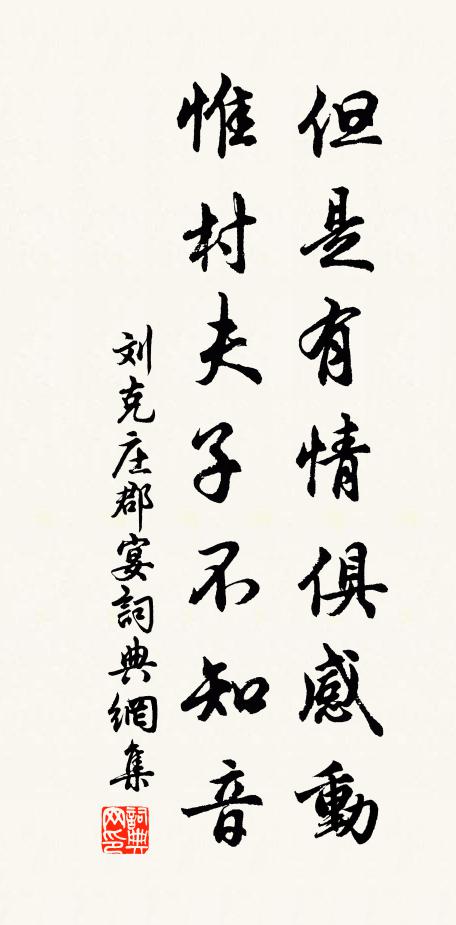 但是有情俱感動
惟村夫子不知音
刘克庄郡宴詞典網集
詞典网印